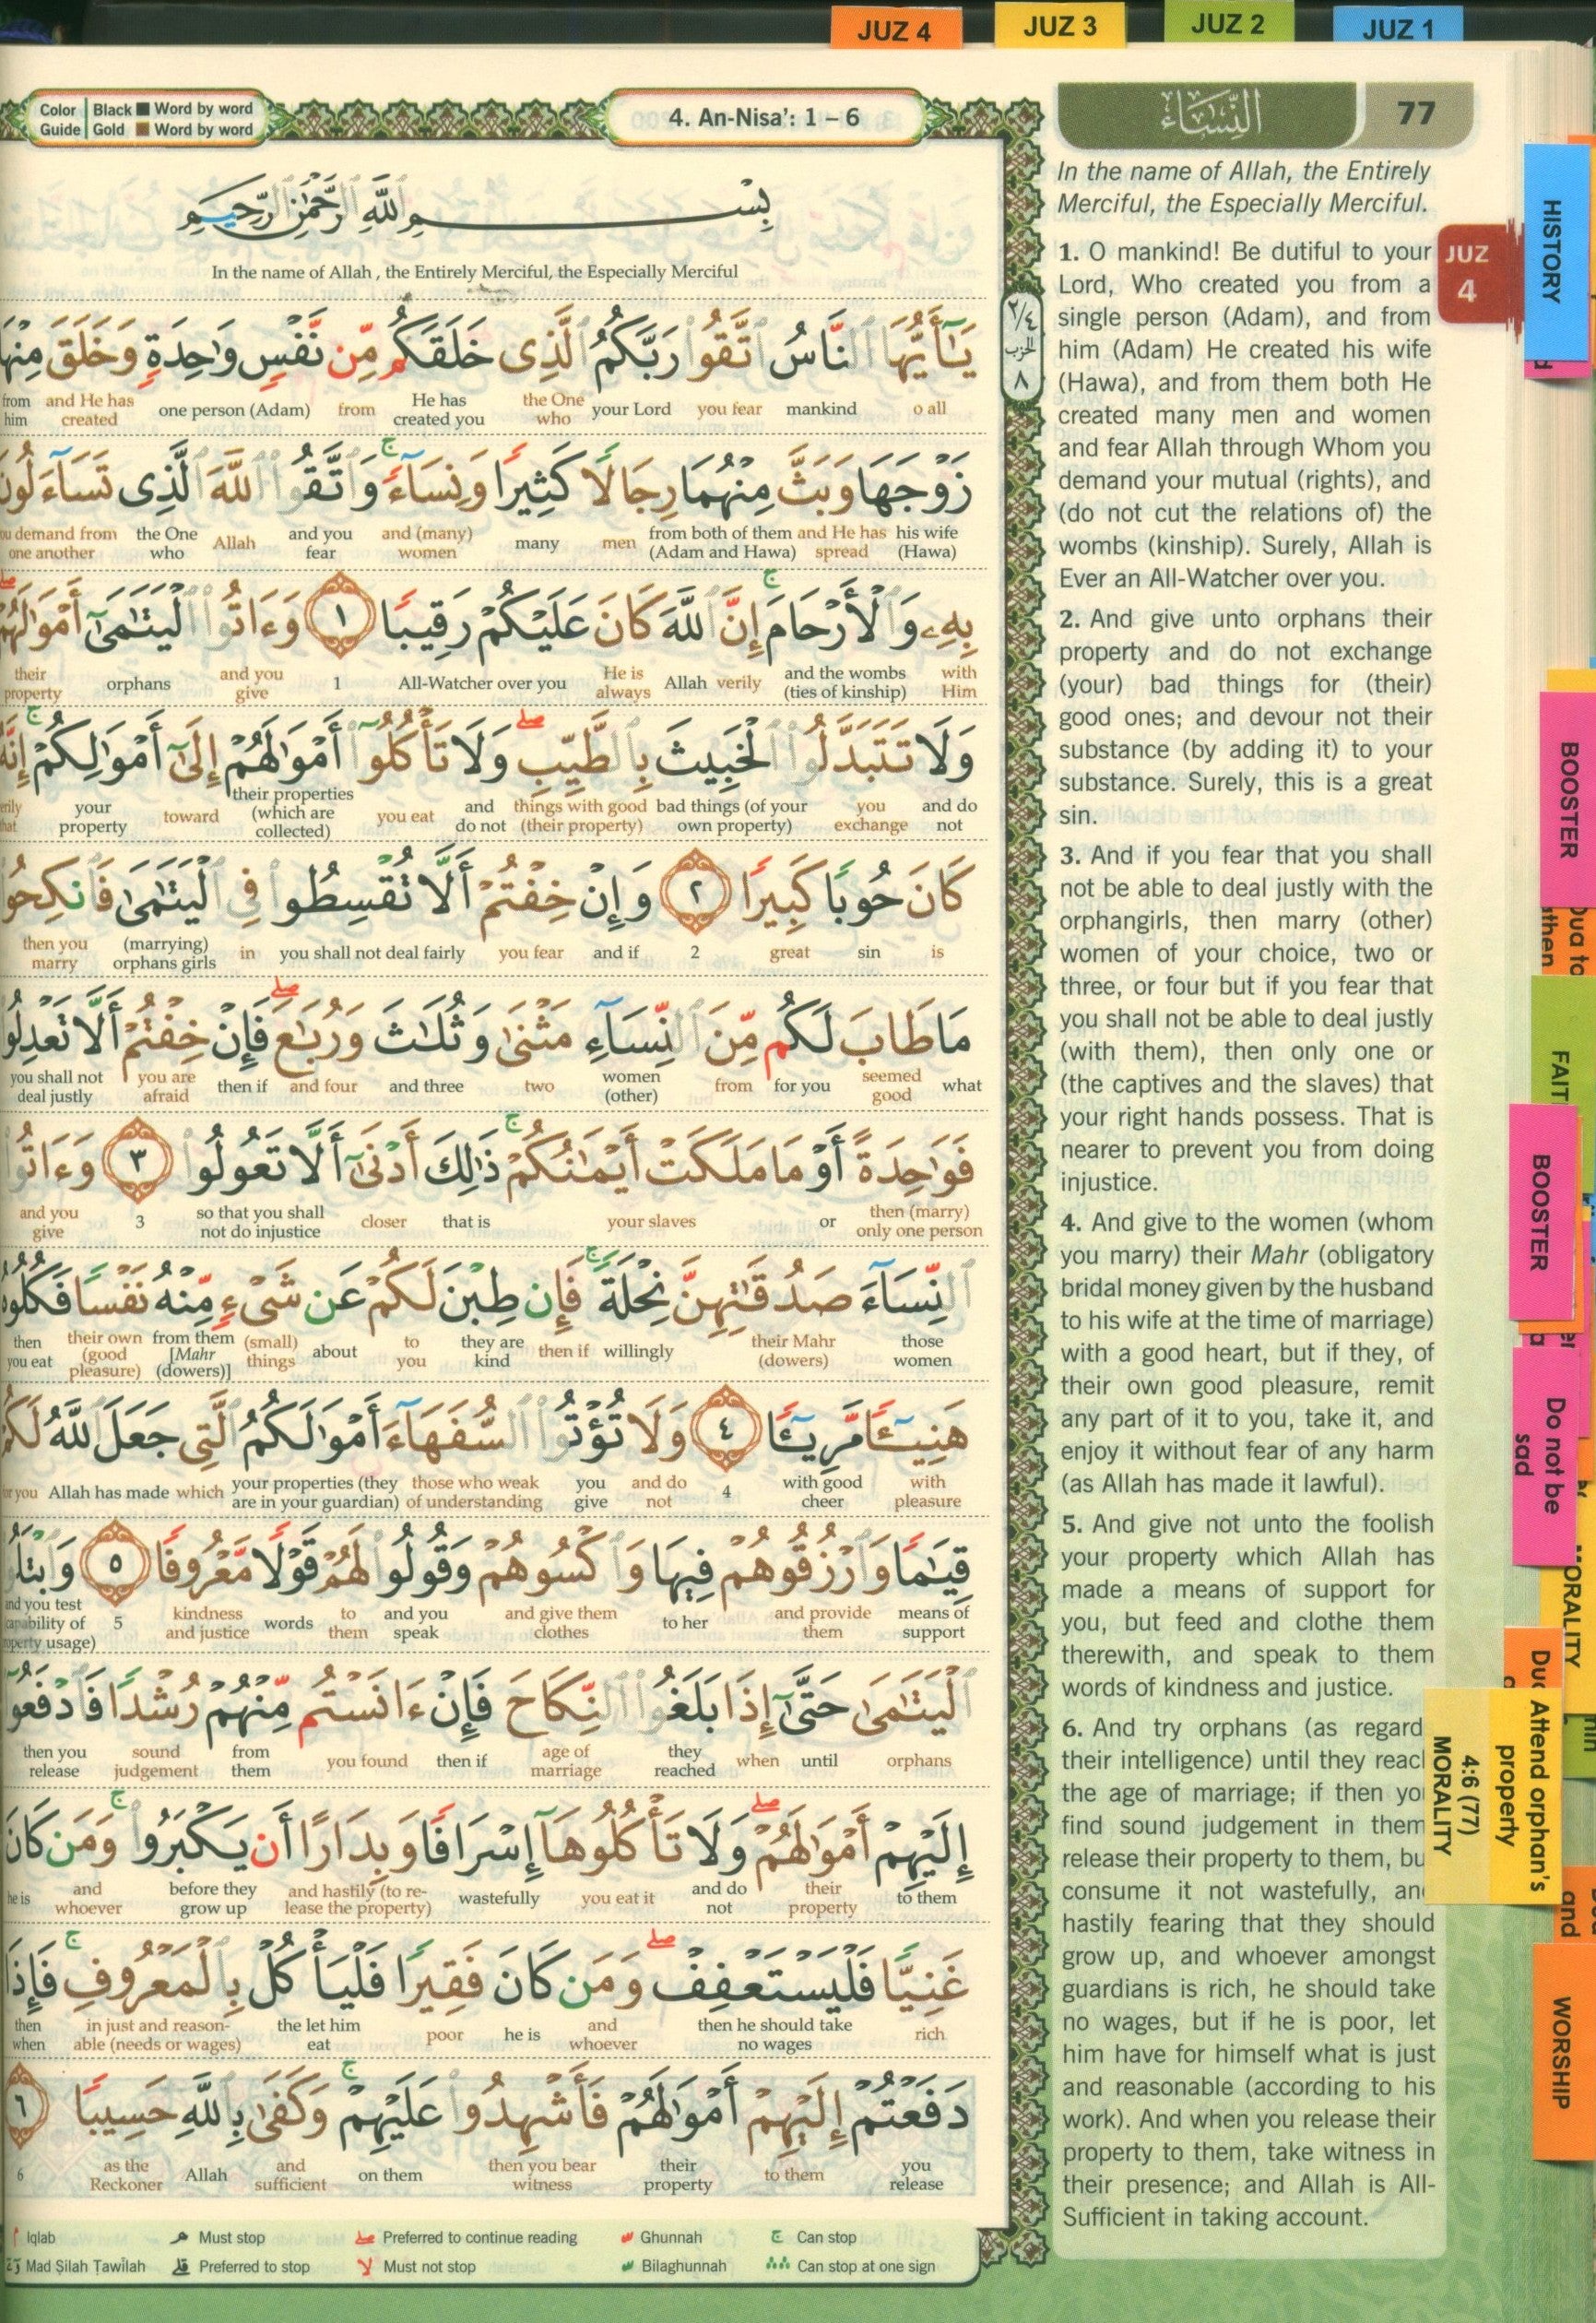 JUZ 4
JUZ 3
JUZ 2
JUZ 1
Color Guide
Black ■ Word by word
Gold ■ Word by word
4. An-Nisa': 1 – 6
النِّسَاء
77
بِسْمِ ٱللَّهِ ٱلرَّحْمَٰنِ ٱلرَّحِيمِ
In the name of Allah , the Entirely Merciful, the Especially Merciful
يَٰٓأَيُّهَا ٱلنَّاسُ ٱتَّقُوا۟ رَبَّكُمُ ٱلَّذِى خَلَقَكُم مِّن نَّفْسٍ وَٰحِدَةٍ وَخَلَقَ مِنْهَا
from him and He has created one person (Adam) from He has created you the One who your Lord you fear mankind o all
زَوْجَهَا وَبَثَّ مِنْهُمَا رِجَالًا كَثِيرًا وَنِسَآءً ۚ وَٱتَّقُوا۟ ٱللَّهَ ٱلَّذِى تَسَآءَلُونَ
demand from one another the One who Allah and you fear and (many) women many men from both of them (Adam and Hawa) and He has spread his wife (Hawa)
بِهِۦ وَٱلْأَرْحَامَ ۚ إِنَّ ٱللَّهَ كَانَ عَلَيْكُمْ رَقِيبًا ١ وَءَاتُوا۟ ٱلْيَتَٰمَىٰٓ أَمْوَٰلَهُمْ ۖ
their property orphans and you give 1 All-Watcher over you He is always Allah verily and the wombs (ties of kinship) with Him
وَلَا تَتَبَدَّلُوا۟ ٱلْخَبِيثَ بِٱلطَّيِّبِ ۖ وَلَا تَأْكُلُوٓا۟ أَمْوَٰلَهُمْ إِلَىٰٓ أَمْوَٰلِكُمْ ۚ إِنَّهُۥ
your property toward their properties (which are collected) you eat and do not things with good (their property) bad things (of your own property) you exchange and do not
كَانَ حُوبًا كَبِيرًا ٢ وَإِنْ خِفْتُمْ أَلَّا تُقْسِطُوا۟ فِى ٱلْيَتَٰمَىٰ فَٱنكِحُوا۟
then you marry (marrying) orphans girls in you shall not deal fairly you fear and if 2 great sin is
مَا طَابَ لَكُم مِّنَ ٱلنِّسَآءِ مَثْنَىٰ وَثُلَٰثَ وَرُبَٰعَ ۖ فَإِنْ خِفْتُمْ أَلَّا تَعْدِلُوا۟
you shall not deal justly you are afraid then if and four and three two women (other) from for you seemed good what
فَوَٰحِدَةً أَوْ مَا مَلَكَتْ أَيْمَٰنُكُمْ ۚ ذَٰلِكَ أَدْنَىٰٓ أَلَّا تَعُولُوا۟ ٣ وَءَاتُوا۟
and you give 3 so that you shall not do injustice closer that is your slaves or then (marry) only one person
ٱلنِّسَآءَ صَدُقَٰتِهِنَّ نِحْلَةً ۚ فَإِن طِبْنَ لَكُمْ عَن شَىْءٍ مِّنْهُ نَفْسًا فَكُلُوهُ
then you eat their own (good pleasure) from them [Mahr (dowers)] (small) things about to you they are kind then if willingly their Mahr (dowers) those women
هَنِيٓـًٔا مَّرِيٓـًٔا ٤ وَلَا تُؤْتُوا۟ ٱلسُّفَهَآءَ أَمْوَٰلَكُمُ ٱلَّتِى جَعَلَ ٱللَّهُ لَكُمْ
you Allah has made which your properties (they are in your guardian) those who weak of understanding you give and do not 4 with good cheer with pleasure
قِيَٰمًا وَٱرْزُقُوهُمْ فِيهَا وَٱكْسُوهُمْ وَقُولُوا۟ لَهُمْ قَوْلًا مَّعْرُوفًا ٥ وَٱبْتَلُوا۟
and you test capability of property usage) 5 kindness and justice words to them and you speak and give them clothes to her and provide them means of support
ٱلْيَتَٰمَىٰ حَتَّىٰٓ إِذَا بَلَغُوا۟ ٱلنِّكَاحَ فَإِنْ ءَانَسْتُم مِّنْهُمْ رُشْدًا فَٱدْفَعُوٓا۟
then you release sound judgement from them you found then if age of marriage they reached when until orphans
إِلَيْهِمْ أَمْوَٰلَهُمْ ۖ وَلَا تَأْكُلُوهَآ إِسْرَافًا وَبِدَارًا أَن يَكْبَرُوا۟ ۚ وَمَن كَانَ
he is and whoever before they grow up and hastily (to release the property) wastefully you eat it and do not their property to them
غَنِيًّا فَلْيَسْتَعْفِفْ ۖ وَمَن كَانَ فَقِيرًا فَلْيَأْكُلْ بِٱلْمَعْرُوفِ ۚ فَإِذَا
then when in just and reason-able (needs or wages) the let him eat poor he is and whoever then he should take no wages rich
دَفَعْتُمْ إِلَيْهِمْ أَمْوَٰلَهُمْ فَأَشْهِدُوا۟ عَلَيْهِمْ ۚ وَكَفَىٰ بِٱللَّهِ حَسِيبًا ٦
6 as the Reckoner Allah and sufficient on them then you bear witness their property to them you release
Iqlab Must stop Preferred to continue reading Ghunnah Can stop
Mad Ṣilah Ṭawīlah Preferred to stop Must not stop Bilaghunnah Can stop at one sign
٢/٤
الحزب
٨
In the name of Allah, the Entirely
Merciful, the Especially Merciful.
1. O mankind! Be dutiful to your
Lord, Who created you from a
single person (Adam), and from
him (Adam) He created his wife
(Hawa), and from them both He
created many men and women
and fear Allah through Whom you
demand your mutual (rights), and
(do not cut the relations of) the
wombs (kinship). Surely, Allah is
Ever an All-Watcher over you.
2. And give unto orphans their
property and do not exchange
(your) bad things for (their)
good ones; and devour not their
substance (by adding it) to your
substance. Surely, this is a great
sin.
3. And if you fear that you shall
not be able to deal justly with the
orphangirls, then marry (other)
women of your choice, two or
three, or four but if you fear that
you shall not be able to deal justly
(with them), then only one or
(the captives and the slaves) that
your right hands possess. That is
nearer to prevent you from doing
injustice.
4. And give to the women (whom
you marry) their Mahr (obligatory
bridal money given by the husband
to his wife at the time of marriage)
with a good heart, but if they, of
their own good pleasure, remit
any part of it to you, take it, and
enjoy it without fear of any harm
(as Allah has made it lawful).
5. And give not unto the foolish
your property which Allah has
made a means of support for
you, but feed and clothe them
therewith, and speak to them
words of kindness and justice.
6. And try orphans (as regard
their intelligence) until they
the age of marriage; if then
find sound judgement in them
release their property to them,
consume it not wastefully,
hastily fearing that they should
grow up, and whoever amongst
guardians is rich, he should take
no wages, but if he is poor, let
him have for himself what is just
and reasonable (according to his
work). And when you release their
property to them, take witness in
their presence; and Allah is All-
Sufficient in taking account.
JUZ
4
HISTORY
BOOSTER
Dua to
FAIT
BOOSTER
Do not be
sad
MORALITY
Attend orphan's
property
4:6 (77)
MORALITY
and
WORSHIP